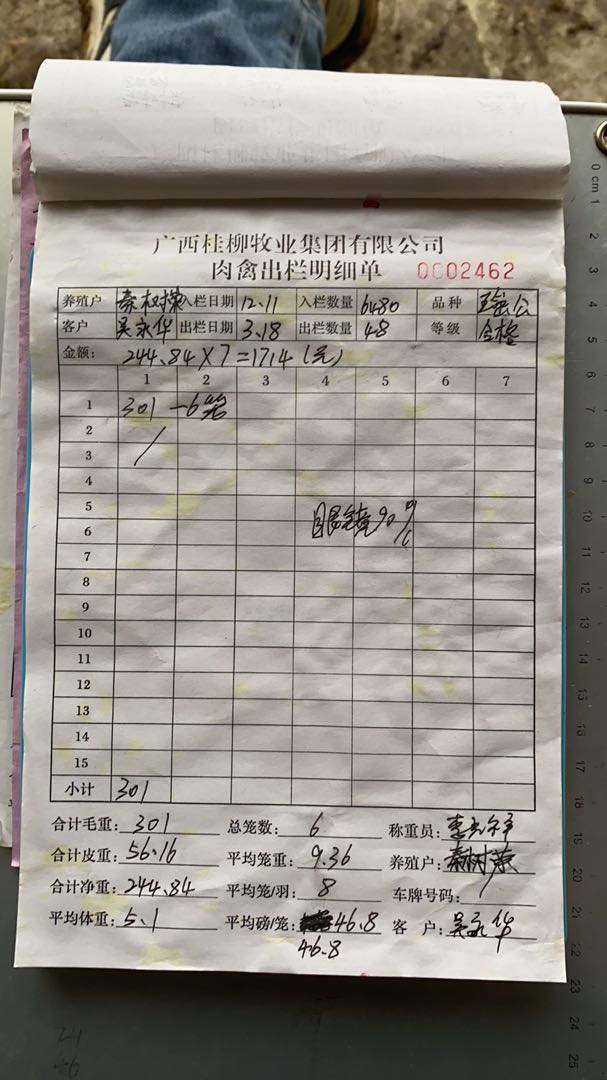 广西桂柳牧业集团有限公司
肉禽出栏明细单 0002462
养殖户 入栏日期 12.11 入栏数量 6480 品种
客户 吴永华 出栏日期 3.18 出栏数量 48 等级 合格
金额: 244.84×7=1714(元)
1 2 3 4 5 6 7
1 301 一6笼
2
3 /
4
5
眼镜90%
6
7
8
9
10
11
12
13
14
15
小计 301
合计毛重: 301 总笼数: 6 称重员:
合计皮重: 56.16 平均笼重: 9.36 养殖户:
合计净重: 244.84 平均笼/羽: 8 车牌号码: /
平均体重: 5.1 平均磅/笼: 46.8 客户: 吴永华
46.8
0 cm 1 2 3 4 5 6 7 8 9 10 11 12 13 14 15 16 17 18 19 20 21 22 23 24 25